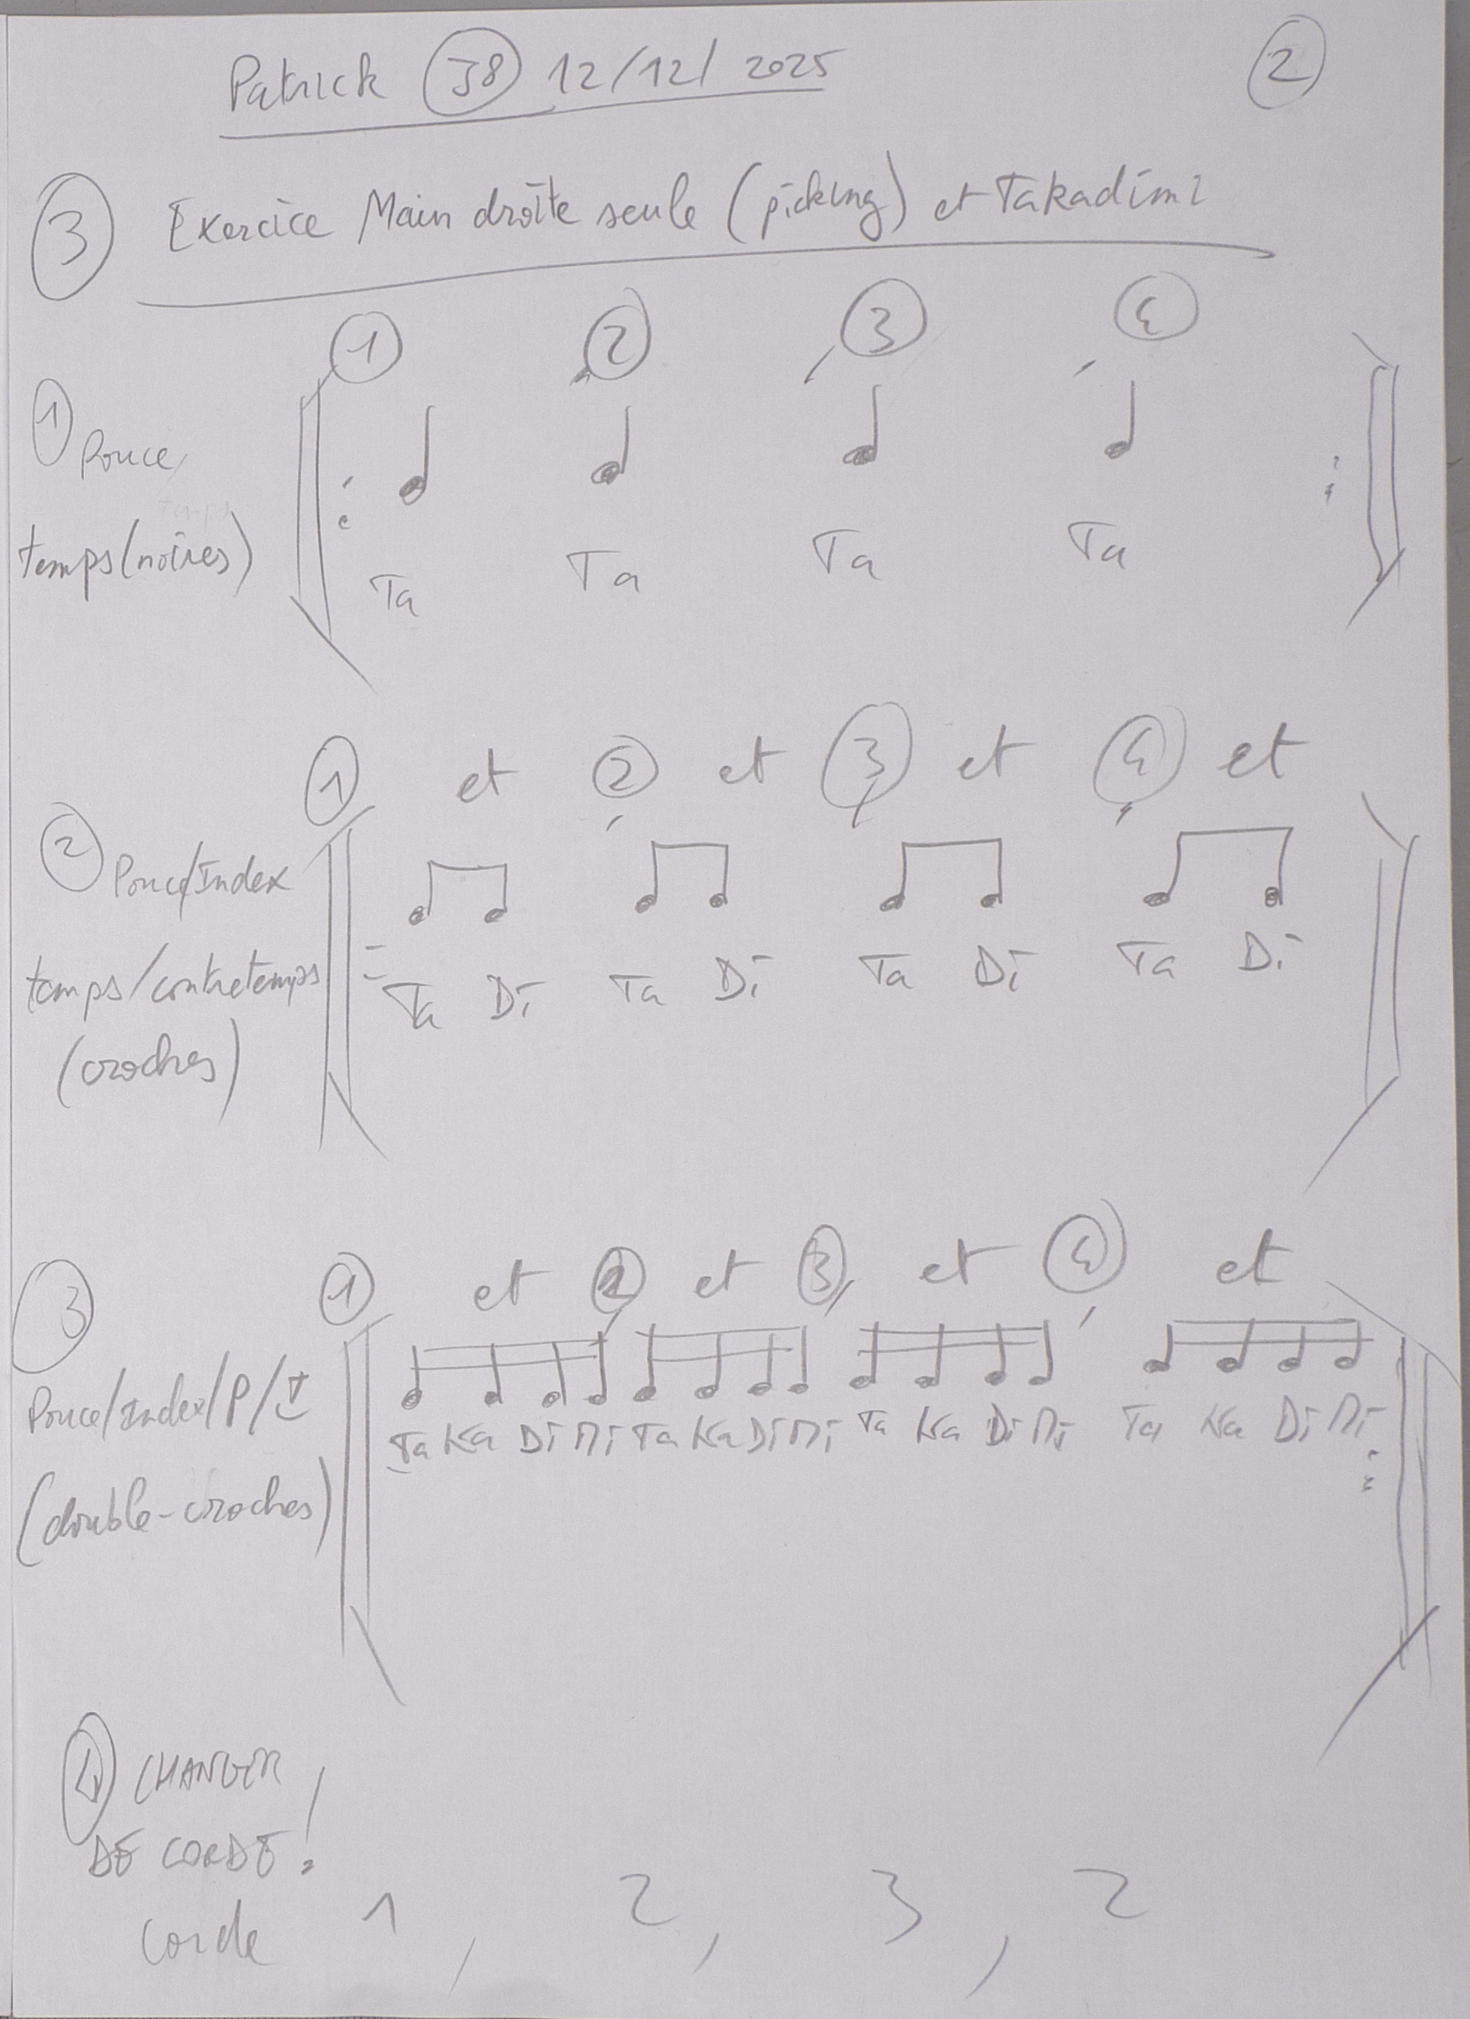 Patrick J8 12/12/2025 2
3 Exercice Main droite seule (picking) et Takadimi
1 2 3 4
1 Pouce
temps (noires)
Ta Ta Ta Ta
1 et 2 et 3 et 4 et
2 Pouce/Index
temps/contretemps
(croches)
Ta Di Ta Di Ta Di Ta Di
1 et 2 et 3 et 4 et
3
Pouce/Index/P/I
(double-croches)
Ta Ka Di Mi Ta Ka Di Mi Ta Ka Di Mi Ta Ka Di Mi
4 CHANGER
DE CORDE!
Corde 1, 2, 3, 2